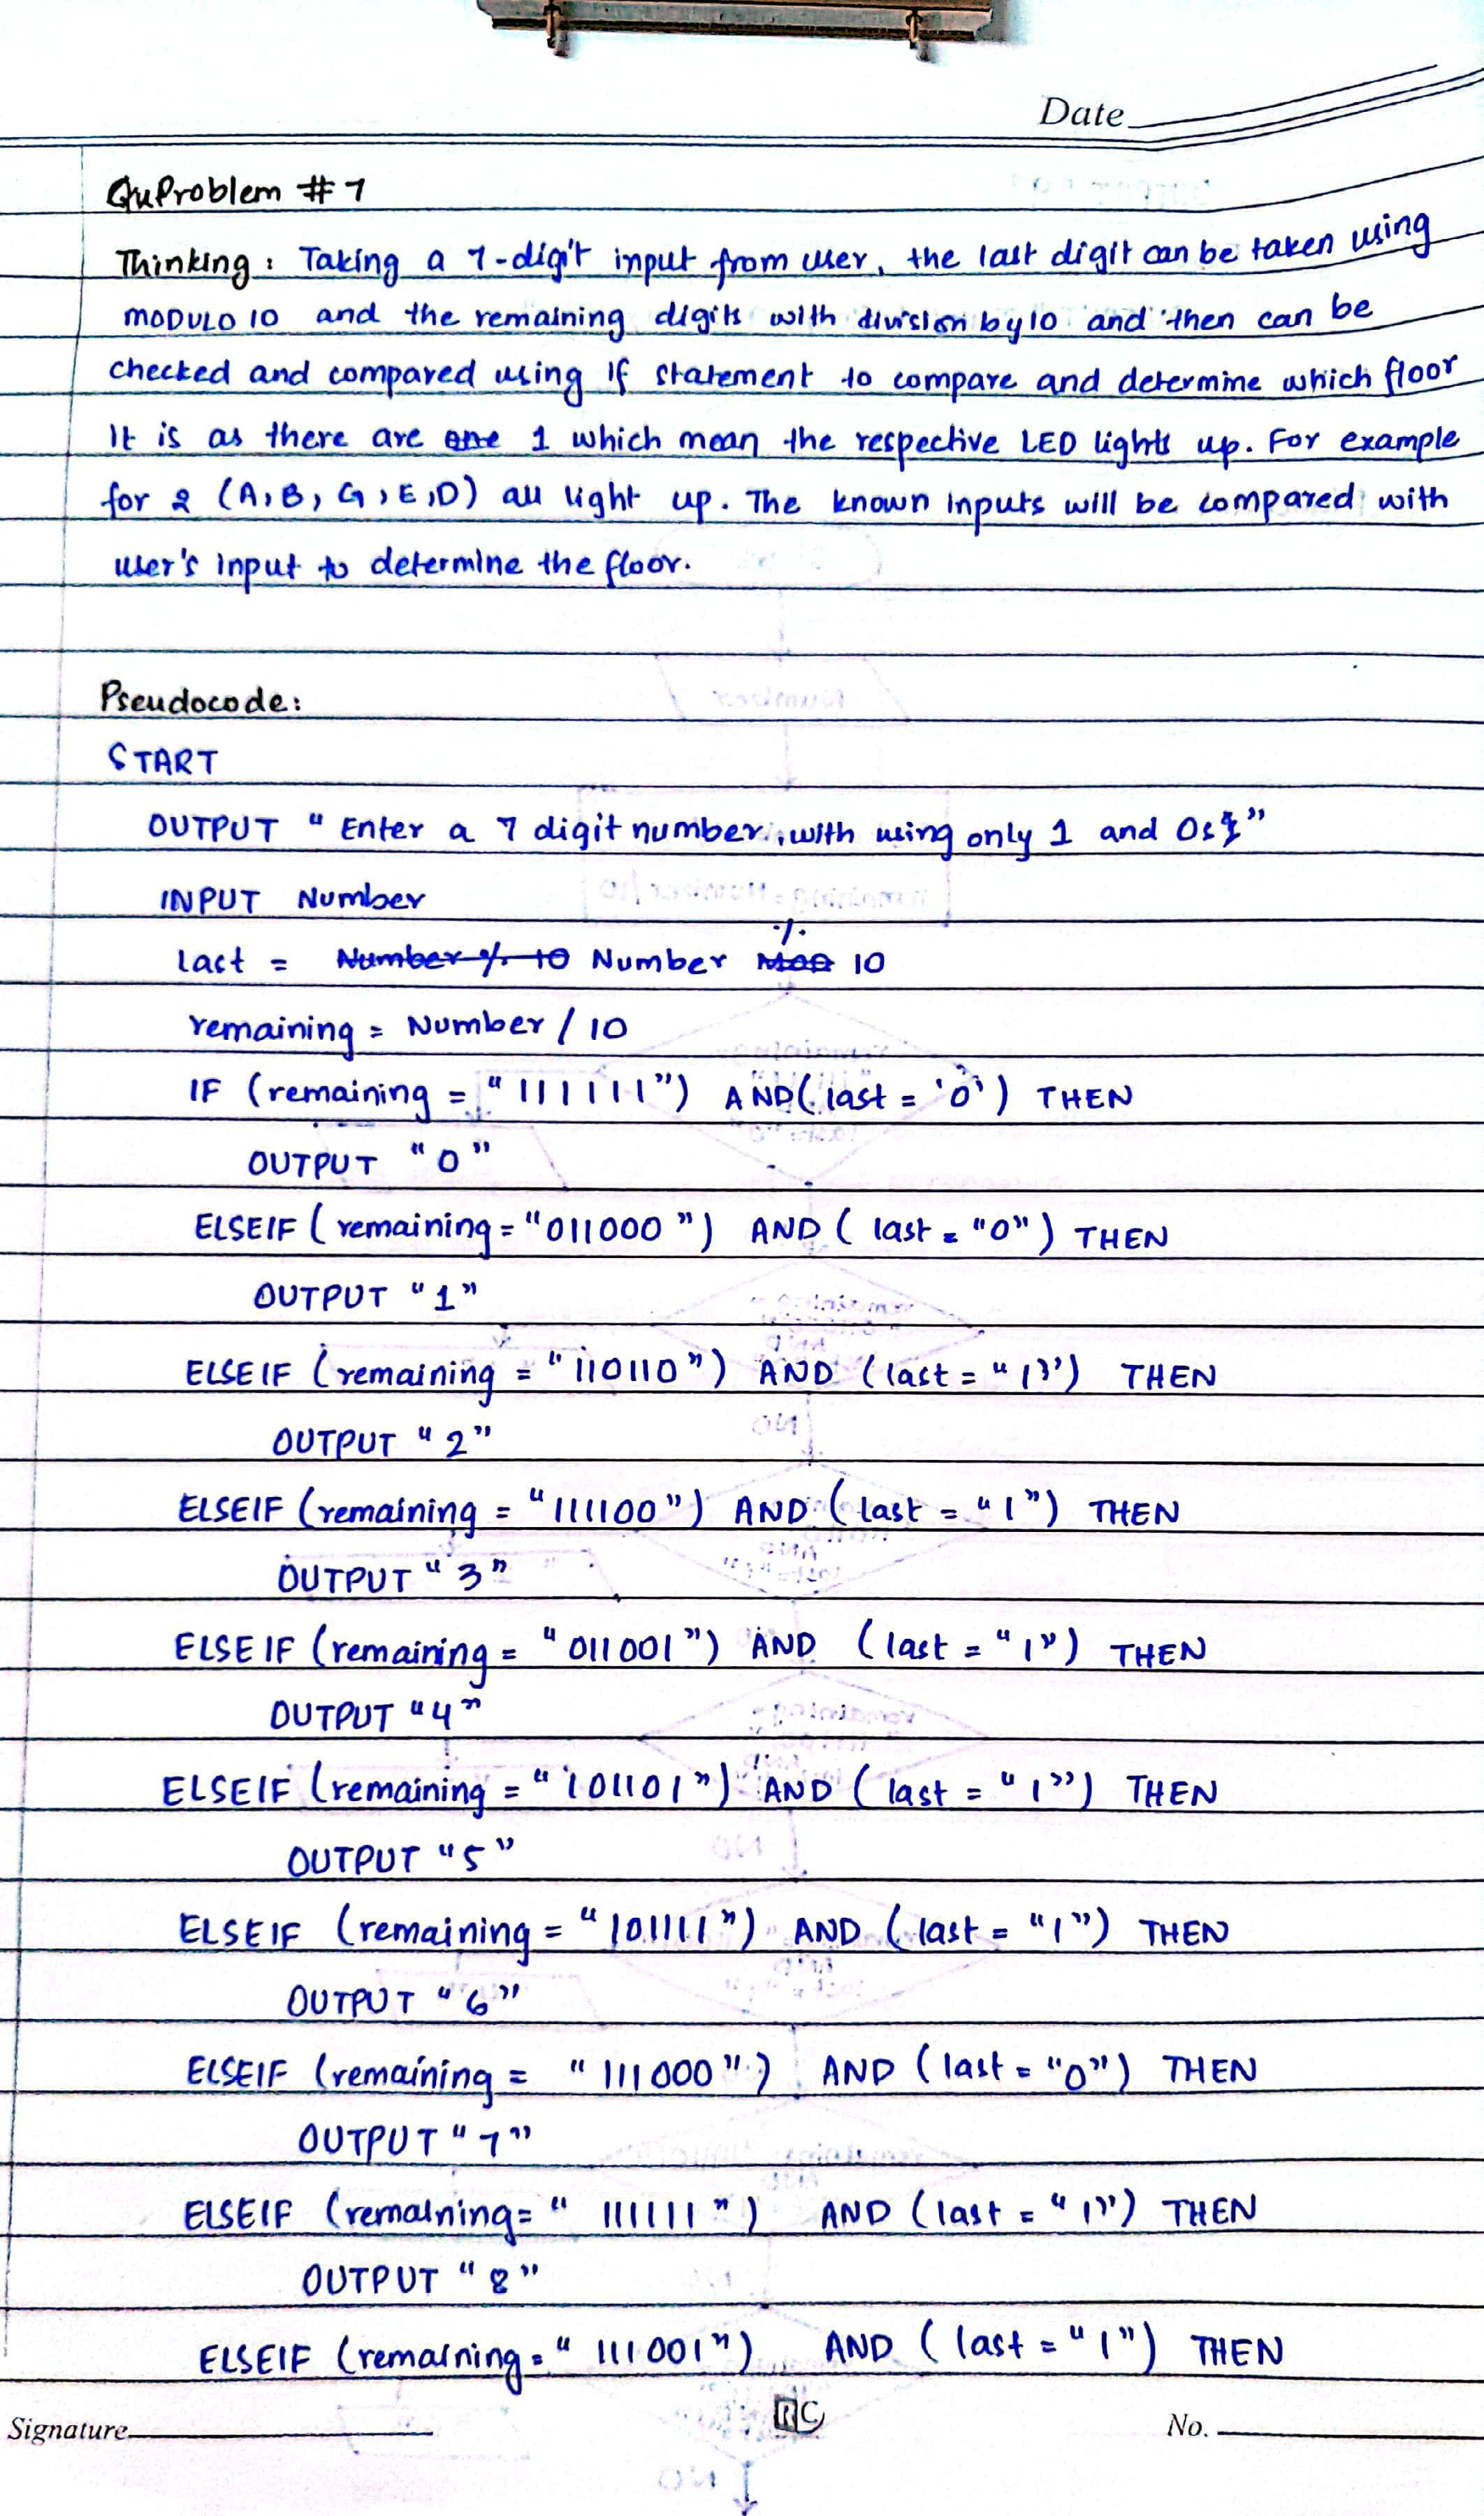 Date
QuProblem # 7
Thinking : Taking a 7-digit input from user, the last digit can be taken using
MODULO 10 and the remaining digits with division by 10 and then can be
checked and compared using if statement to compare and determine which floor
It is as there are one 1 which mean the respective LED lights up. For example
for 2 (A, B, G, E, D) all light up. The known inputs will be compared with
user's input to determine the floor.
Pseudocode:
START
OUTPUT " Enter a 7 digit number, with using only 1 and 0s "
INPUT Number
last = Number % 10 Number MOD % 10
remaining = Number / 10
IF (remaining = "111111") AND (last = '0') THEN
OUTPUT "0"
ELSEIF ( remaining = "011000 ") AND ( last = "0") THEN
OUTPUT "1"
ELSEIF (remaining = "110110") AND (last = "1") THEN
OUTPUT "2"
ELSEIF (remaining = "111100") AND ( last = "1") THEN
OUTPUT "3"
ELSEIF (remaining = "011001") AND (last = "1") THEN
OUTPUT "4"
ELSEIF (remaining = "101101") AND ( last = "1") THEN
OUTPUT "5"
ELSEIF (remaining = "101111") AND ( last = "1") THEN
OUTPUT "6"
ELSEIF (remaining = "111000") AND ( last = "0") THEN
OUTPUT "7"
ELSEIF (remaining = " 111111 ") AND (last = "1") THEN
OUTPUT "8"
ELSEIF (remaining = " 111001") AND ( last = "1") THEN
Signature
RC
No.